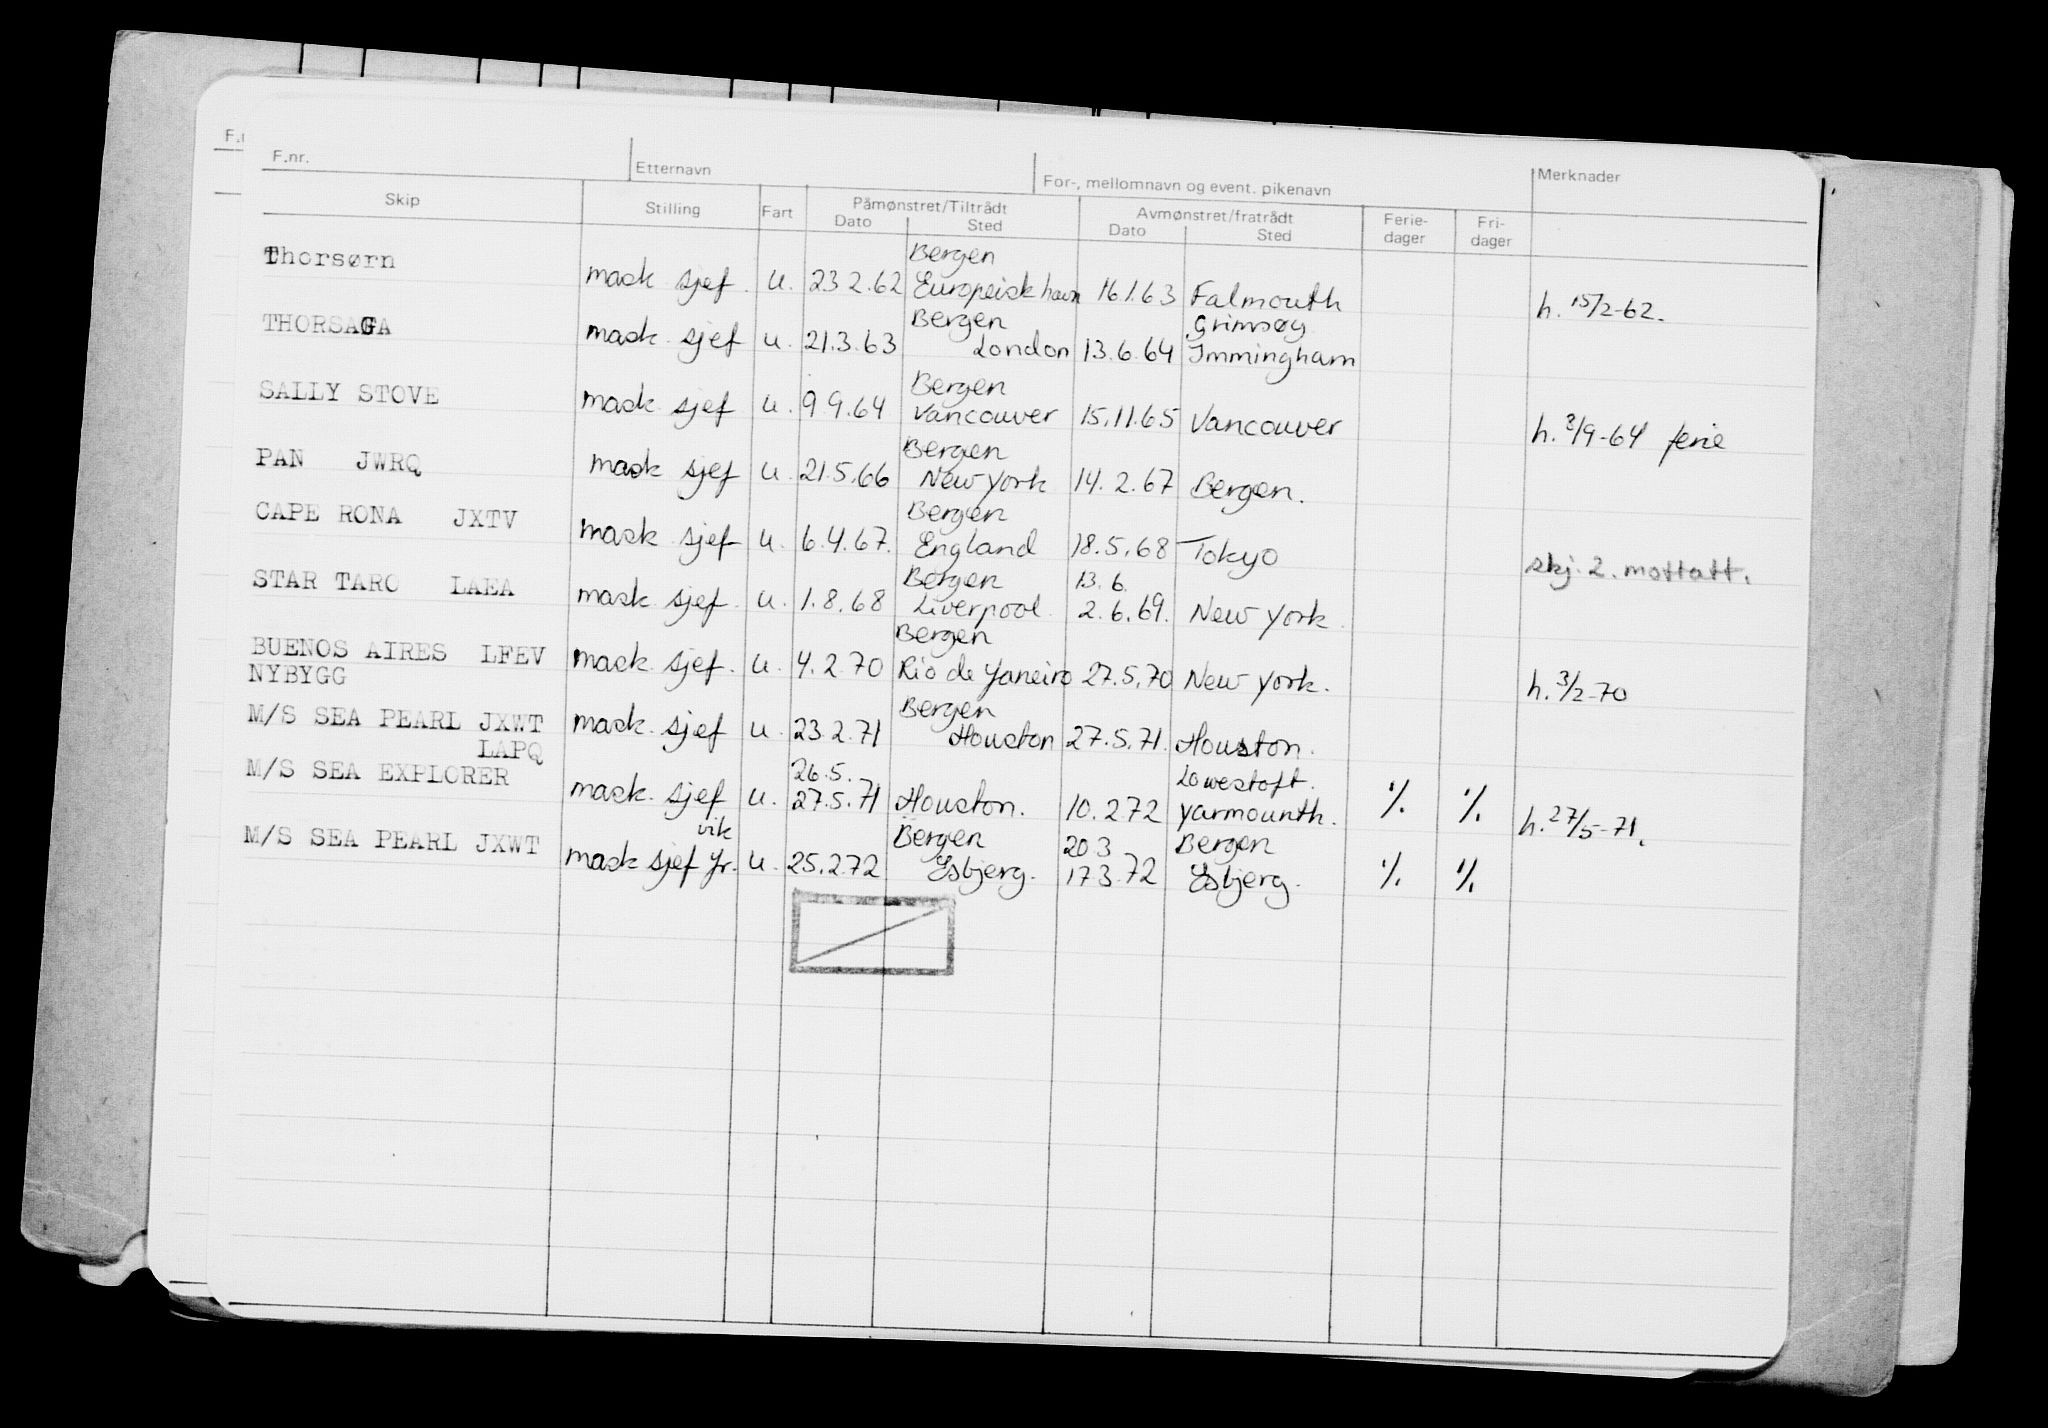 F.nr. Etternavn For-, mellomnavn og event. pikenavn Merknader
Skip Stilling Fart Påmønstret/Tiltrådt Avmønstret/fratrådt Ferie- Fri-
Dato Sted Dato Sted dager dager
Bergen
Thorsørn mask sjef. u. 23 2.62 Europeisk havn 16.1.63 Falmouth h. 15/2-62.
Bergen Grimsøy
THORSAGA mask. sjef u. 21.3.63 London 13.6.64 Immingham
Bergen
SALLY STOVE mask. sjef u. 9 9.64 Vancouver 15.11.65 Vancouver h. 3/9-64 ferie
Bergen
PAN JWRQ mask sjef u. 21.5.66 New York 14. 2.67 Bergen.
Bergen
CAPE RONA JXTV mask sjef u. 6.4.67. England 18.5.68 Tokyo skj. 2. mottatt.
Bergen 13.6.
STAR TARO LAEA mask. sjef. u. 1.8.68 Liverpool. 2.6.69. New York.
Bergen
BUENOS AIRES LFEV mask. sjef. u. 4.2.70 Rio de Janeiro 27.5.70 New York. h. 3/2-70
NYBYGG
Bergen
M/S SEA PEARL JXWT mask. sjef u. 23.2.71 Houston 27.5.71. Houston.
LAPQ
26.5. Lowestoft.
M/S SEA EXPLORER mask. sjef u. 27.5.71 Houston. 10.2.72 Yarmounth. % % h. 27/5-71.
vik Bergen 20.3 Bergen
M/S SEA PEARL JXWT mask sjef fr. u. 25.2.72 Esbjerg. 17 3.72 Esbjerg. % %